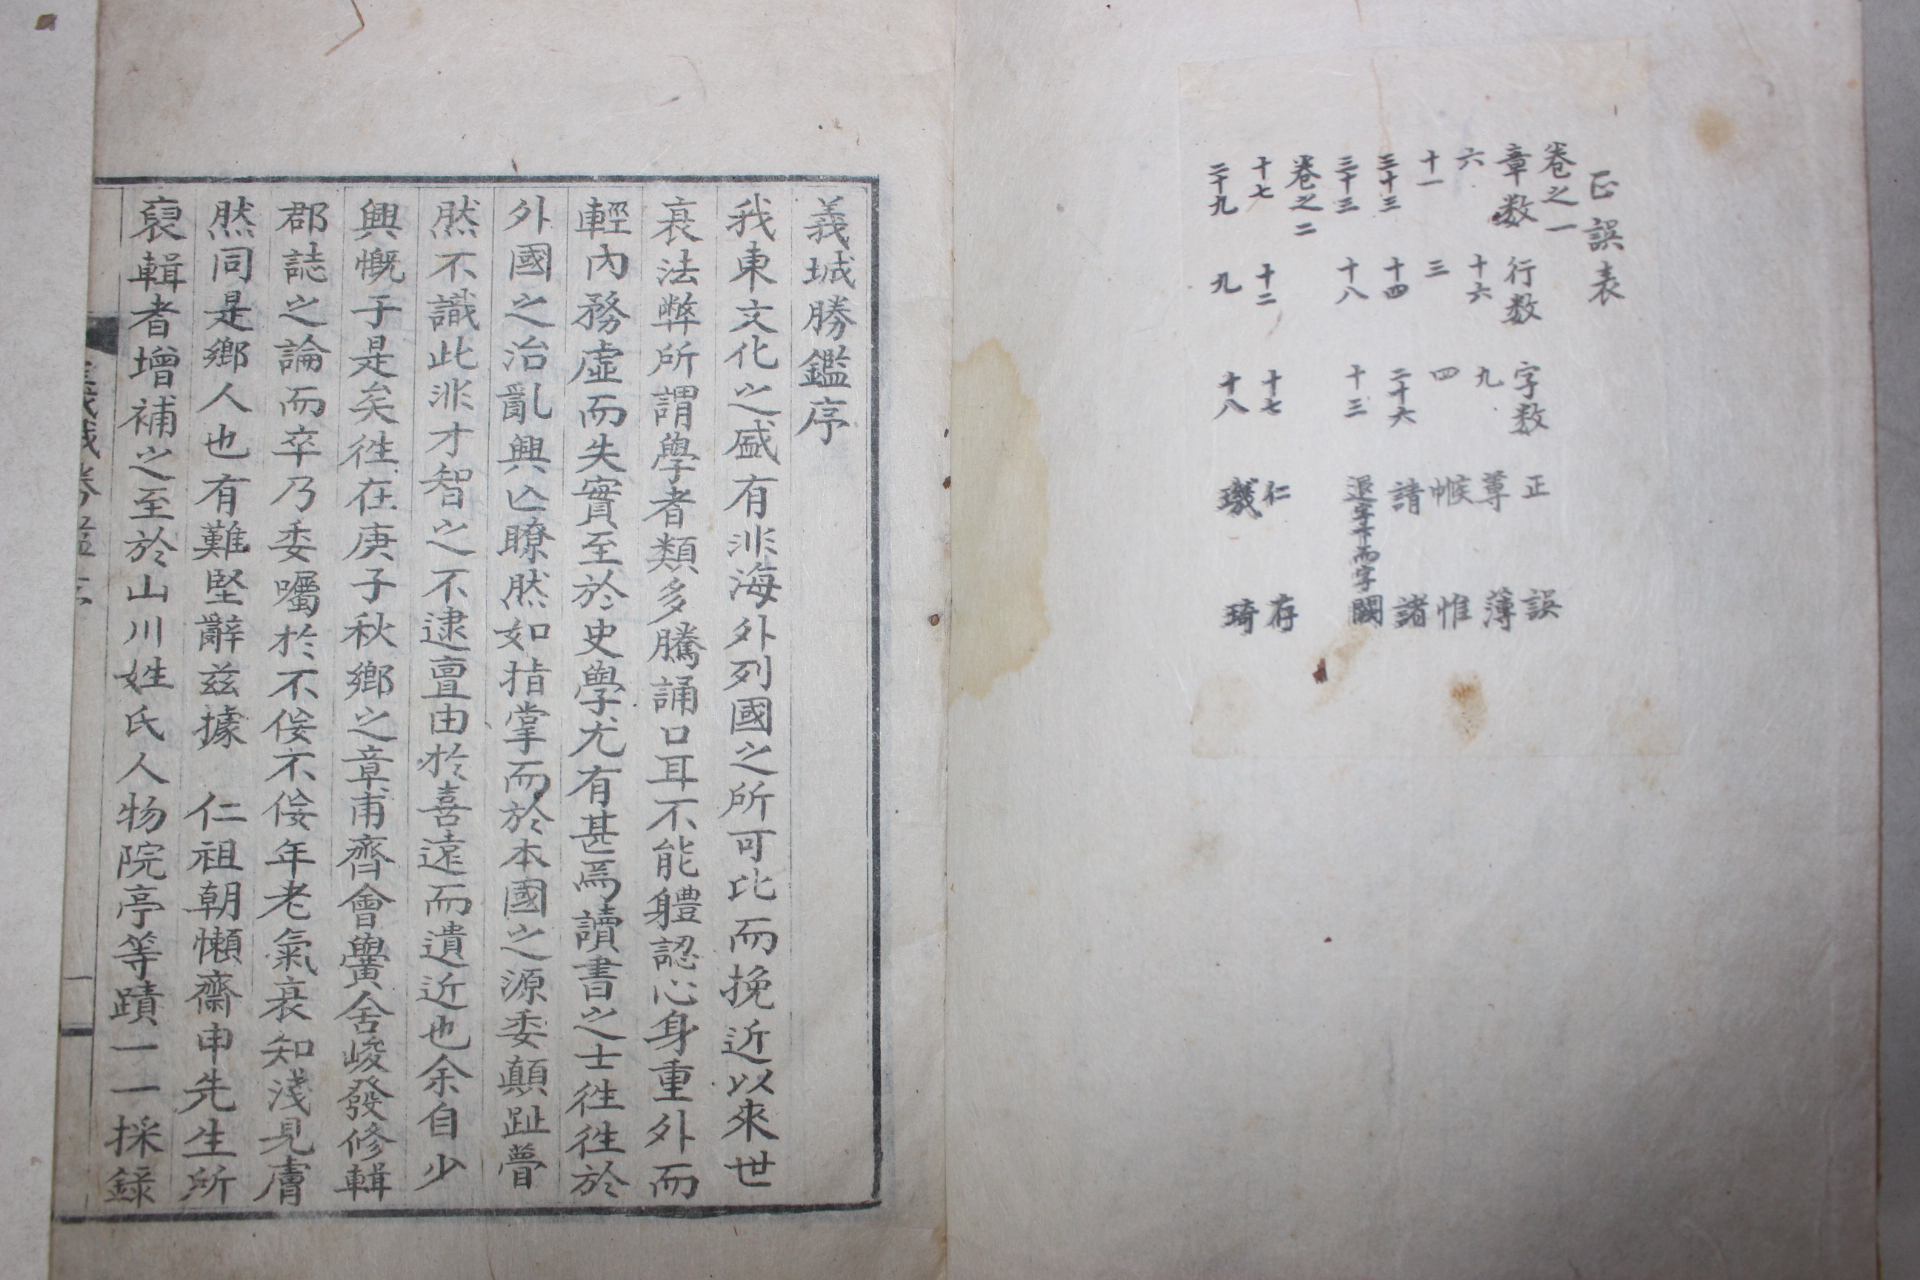 正誤表
卷之一
章数 行数 字数 正 誤
六 十六 九 尊 薄
十一 三 四 帿 惟
三十三 十四 二十六 請 諸
三十三 十八 十三 退字下而字 闕
卷之二
十七 十二 十七 仁 存
二十九 九 十八 璣 琦
義城勝鑑序
我東文化之盛有非海外列國之所可比而挽近以來世
衰法弊所謂學者類多騰誦口耳不能軆認心身重外而
輕內務虛而失實至於史學尤有甚焉讀書之士徃徃於
外國之治亂興亾瞭然如指掌而於本國之源委顛趾瞢
然不識此非才智之不逮亶由於喜遠而遺近也余自少
興慨于是矣徃在庚子秋鄉之章甫齊會黌舍峻發修輯
郡誌之論而卒乃委囑於不佞不佞年老氣衰知淺見膚
然同是鄉人也有難堅辭玆據 仁祖朝懶齋申先生所
裒輯者增補之至於山川姓氏人物院亭等蹟一一採錄
義城勝鑑序
一